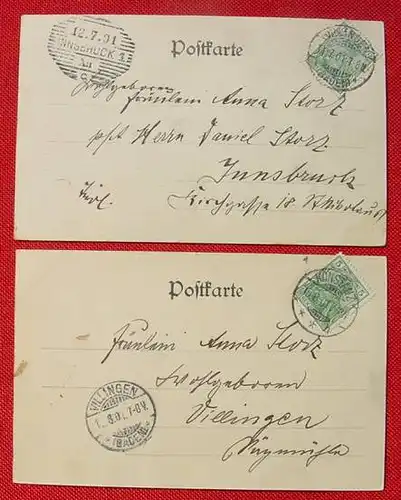 12.7.01
INNSBRUCK 1
Postkarte
VILLINGEN
(BADEN)
Fräulein Anna Storz
Herrn Daniel Storz
Innsbruck
Tirol. Kirchgasse 18 St. Nikolaus
Postkarte
Fräulein Anna Storz
Wohlgeboren
Villingen
VILLINGEN
(BADEN)